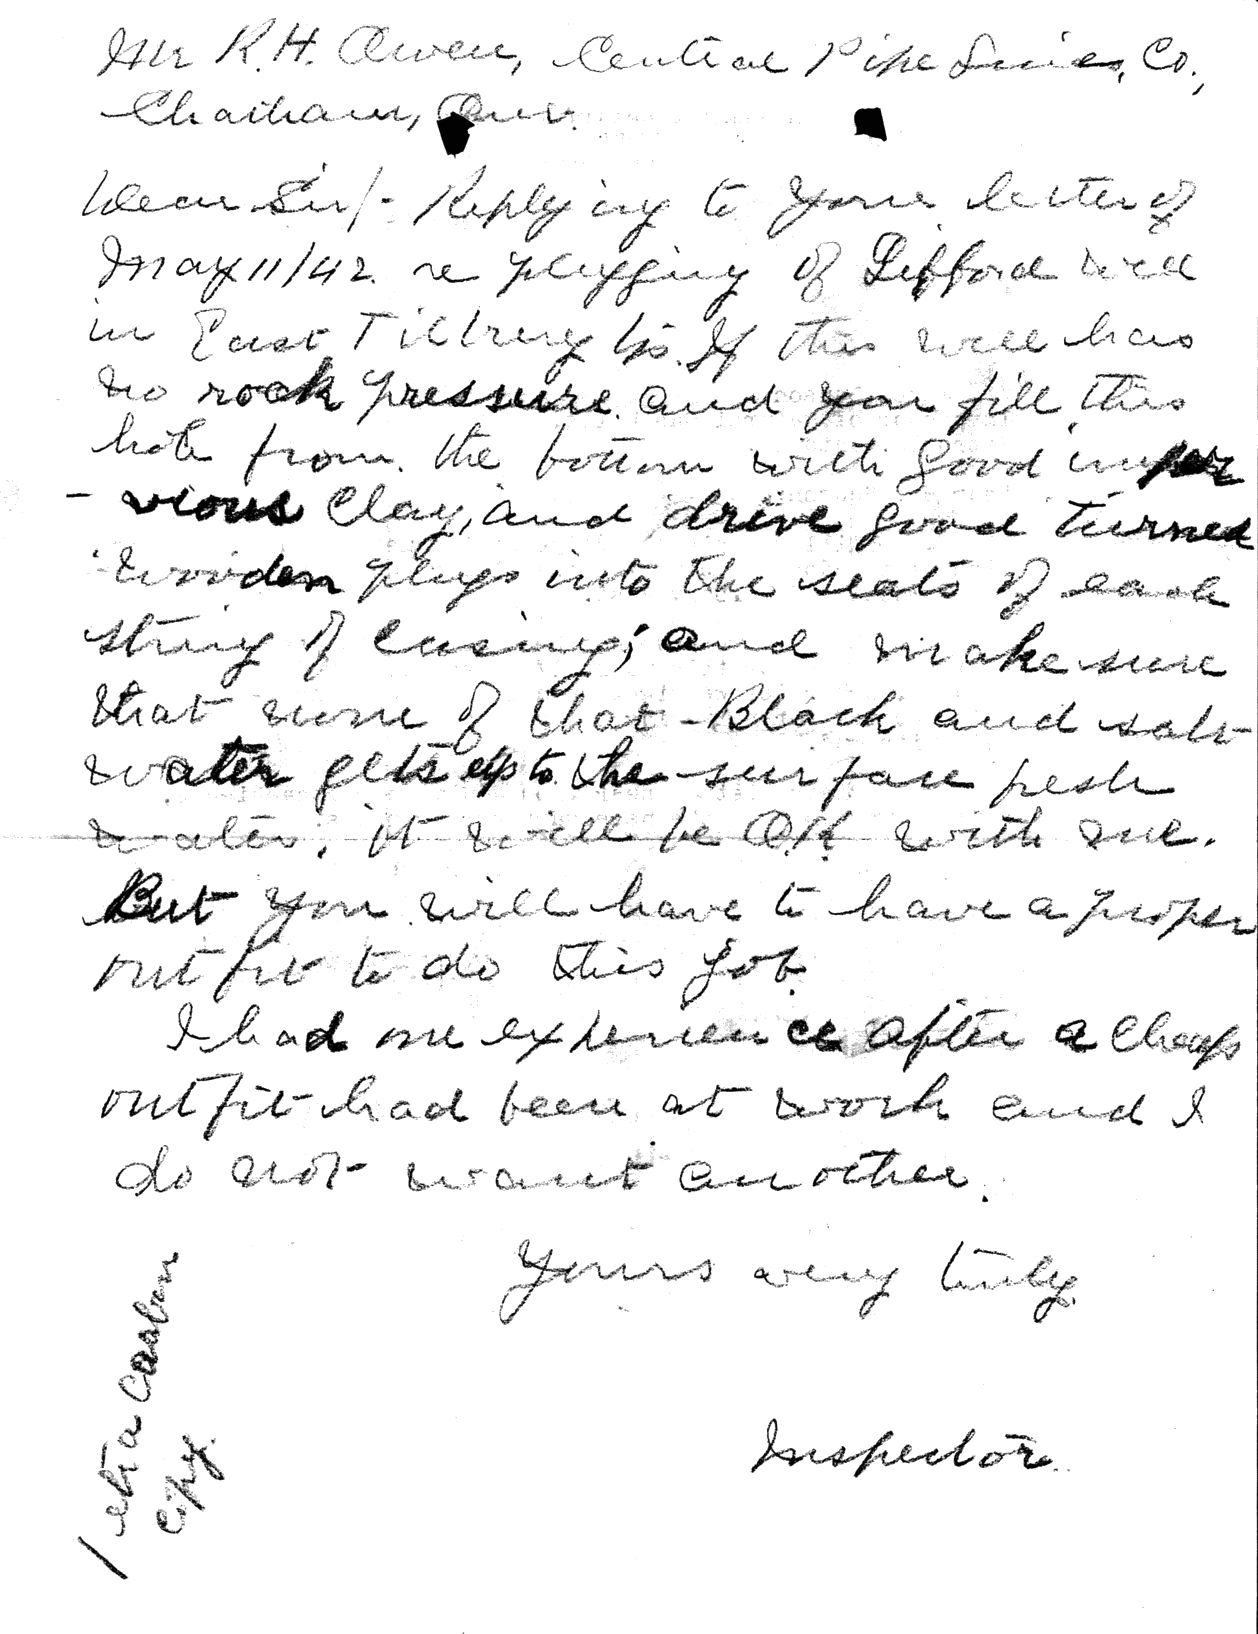 Mr R.H. Owen, Central Pipe Lines, Co.,
Chatham, Ont.
Dear Sir/- Replying to your letter of
May 11/42 re plugging of Gifford well
in East Tilbury Tp. If this well has
no rock pressure and you fill this
hole from the bottom with good imper
- vious Clay, and drive good turned
wooden plugs into the seats of each
string of casing; and make sure
that none of that Black and salt
water gets up to the surface fresh
water, it will be O.K. with me.
But you will have to have a proper
outfit to do this job.
I had one experience after a cheap
outfit had been at work and I
do not want another.
Yours very truly
Inspector.
1 extra Carbon
Copy.